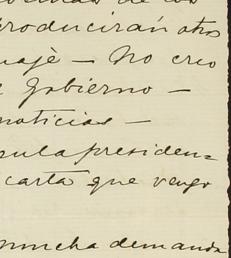 de los
producirán otros
uajè — No creo
Gobierno —
noticias —
sula presiden=
carta que vengo
mucha demanda